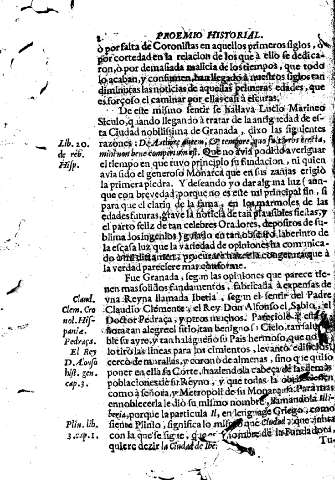 2 PROEMIO HISTORIAL.
ò por falta de Coronistas en aquellos primeros siglos, ò
por cortedad en la relacion de los que à ello se dedica-
ron, ò por demasiada malicia de los tiempos, que todo
lo acaban, y consumen, han llegado à nuestros siglos tan
diminutas las noticias de aquellas primeras edades, que
es forçoso el caminar por ellas casi à escuras.
De este mismo sentir se hallava Lucio Marineo
Siculo, quando llegando à tratar de la antiguedad de es-
ta Ciudad nobilissima de Granada, dixo las siguientes
Lib. 20.
de reb.
Hisp.
razones: De
Que no avià podido averiguar
el tiempo en que tuvo principio su fundacion, ni quien
avia sido el generoso Monarca que en sus zanjas erigiò
la primera piedra. Y deseando yo dar alguna luz (aun-
que con brevedad, porque no es este mi principal fin, si
para que el clarin de la fama, en los marmoles de las
edades futuras, grave la noticia de tan plausibles fiestas, y
el parto feliz de tan celebres Oradores, depositos de su-
blimados ingenios) guiado en tan obscuro laberinto de
la escasa luz que la variedad de opiniones ha comunica-
do
la verdad pareciere mas conforme.
Fue Granada, segun las opiniones que parece tie-
nen mas solidos fundamentos, fabricada à expensas de
una Reyna llamada Iberia, segun el sentir del Padre
Claud.
Clem. Cro
nol. His-
paniæ.
Pedraça.
El Rey
D. Alonso
hist. gen.
cap. 3.
Claudio Clemente, y el Rey Don Alfonso el Sabio, el
Doctor Pedraça, y otros muchos. Pareciole à esta
señora tan alegre el sitio, tan benigno su Cielo, tan saluda-
ble su ayre, y tan halagueño su Pais hermoso, que no
lo tirò las lineas para los cimientos, levantò edificios
cercò de murallas, y coronò de almenas, sino que quiso
poner en ella su Corte, haziendola cabeça de las demàs
poblaciones de su Reyno, y que todas la obedeciessen
como à señora, y Metropoli de su Monarquia. Para mas
ennoblecerla le diò su mismo nombre, llamandola Illi-
beria, porque la particula Il, en lenguage Griego, como
Plin. lib.
3. cap. 1.
siente Plinio, significa lo mismo que Ciudad: y que juntas
con la que se sigue, que es nombre de la Fundadora,
quiere dezir la Ciudad de Ibe-
Tu-